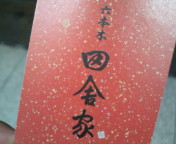 六本木
田舎家